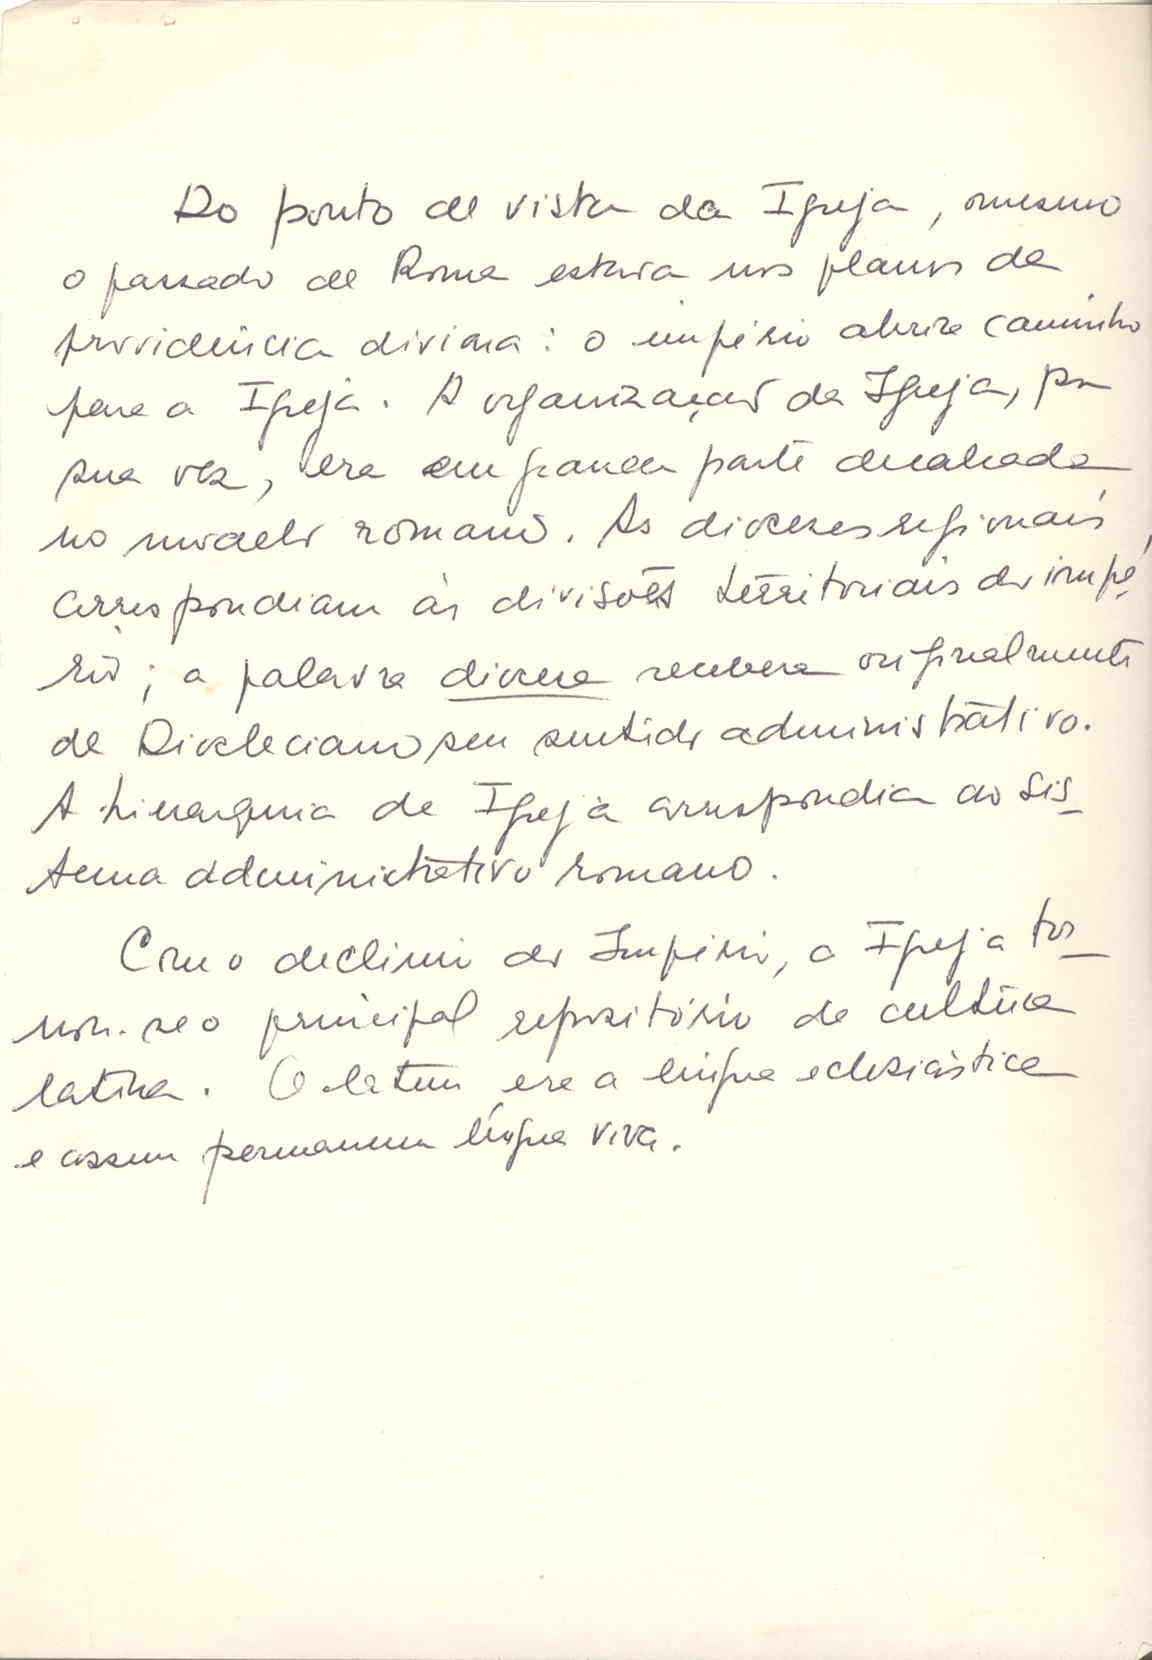 Do ponto de vista da Igreja, mesmo
o passado de Roma estava nos planos da
providência divina: o império abrira caminho
para a Igreja. A organização da Igreja, por
sua vez, era em grande parte decalcada
no modelo romano. As dioceses regionais
correspondiam às divisões territoriais do impé-
rio; a palavra diocese recebera originalmente
de Diocleciano seu sentido administrativo.
A hierarquia da Igreja correspondia ao sis-
tema administrativo romano.
Com o declínio do Império, a Igreja tor-
nou-se o principal repositório da cultura
latina. O latim era a língua eclesiástica
e assim permaneceu língua viva.